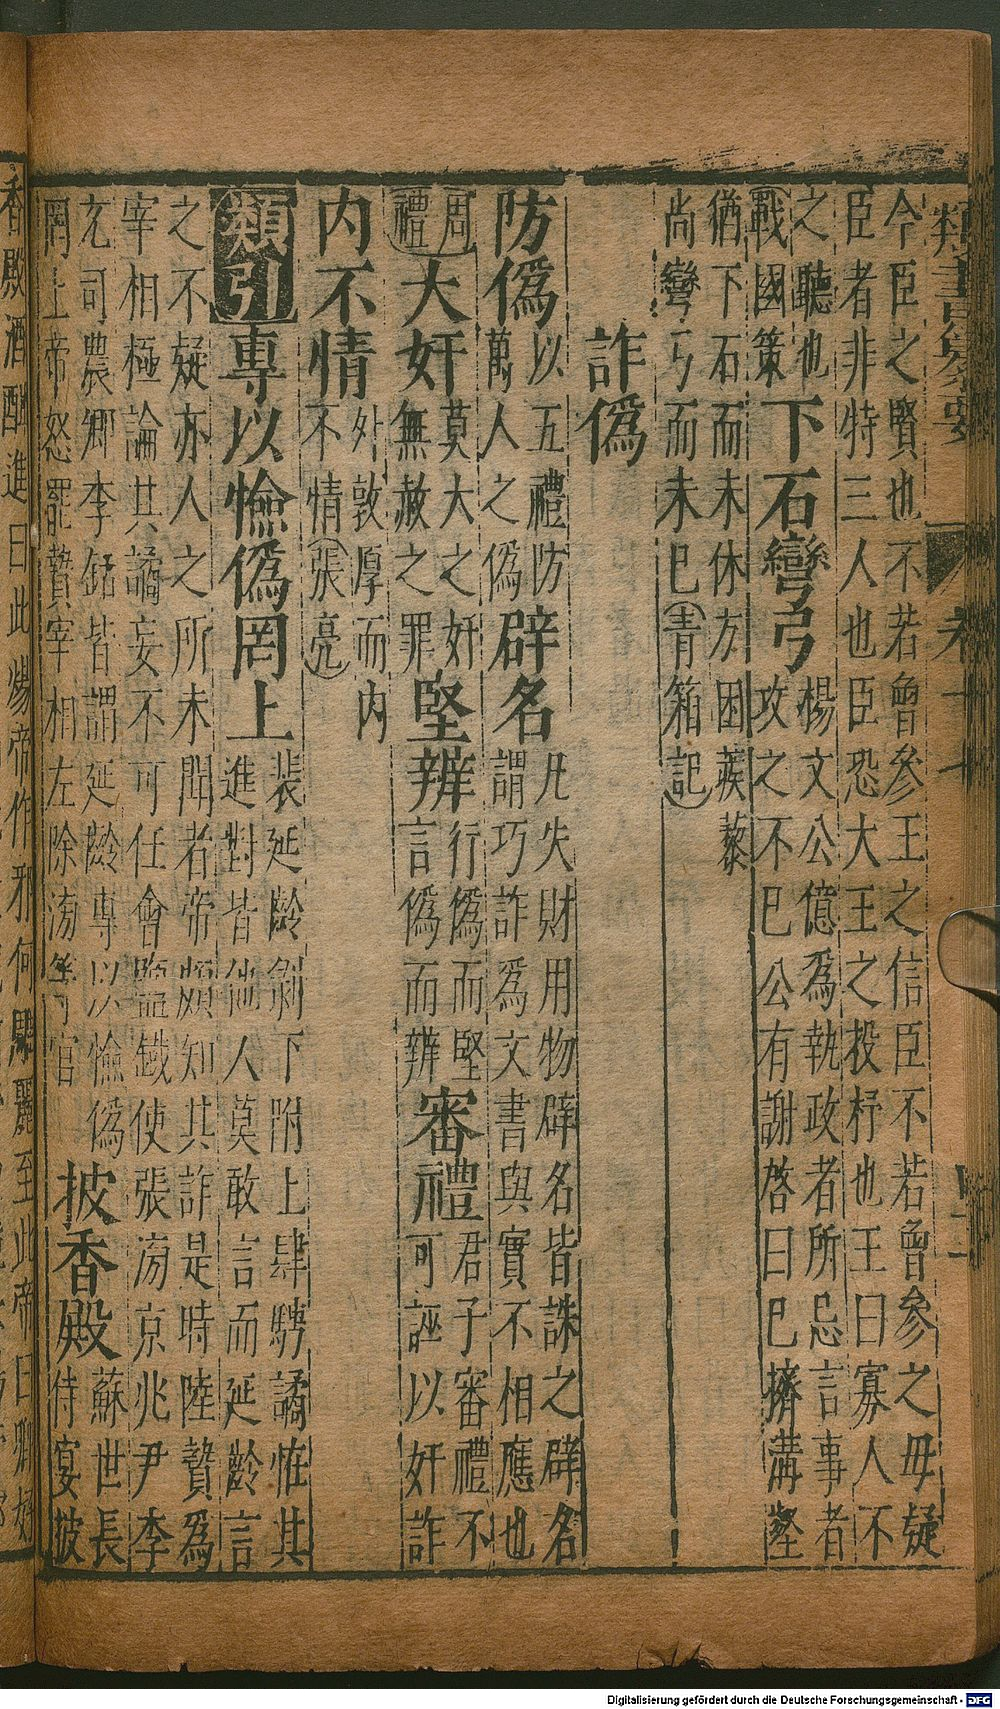 類書纂要 卷十七
今臣之賢也不若曾參王之信臣不若曾參之毋疑
臣者非特三人也臣恐大王之投杼也王曰寡人不
之聽也
戰國策
下石彎弓
楊文公億爲執政者所忌言事者
攻之不已公有謝啓曰已擠溝壑
猶下石而未休方困蒺藜
尚彎弓而未已(青箱記)
詐僞
防僞
以五禮防
萬人之僞
辟名
凡失財用物辟名皆誅之辟名
謂巧詐爲文書與實不相應也
周禮
大奸
莫大之奸
無赦之罪
堅辨
行僞而堅
言僞而辨
審禮
君子審禮不
可誣以奸詐
内不情
外敦厚而内
不情(張亮)
類引
專以憸僞罔上
裴延齡剝下附上肆騁譎怪其
進對皆他人莫敢言而延齡言
之不疑亦人之所未聞者帝頗知其詐是時陸贄爲
宰相極論其譎妄不可任會鹽鐵使張滂京兆尹李
充司農卿李銛皆謂延齡專以憸僞
罔上帝怒罷贄宰相左除滂等官
披香殿
蘇世長
侍宴披
香殿酒酣進曰此煬帝作邪何雕麗至此帝曰卿好
Digitalisierung gefördert durch die Deutsche Forschungsgemeinschaft - DFG